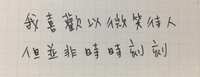 我喜歡以微笑待人
但並非時時刻刻